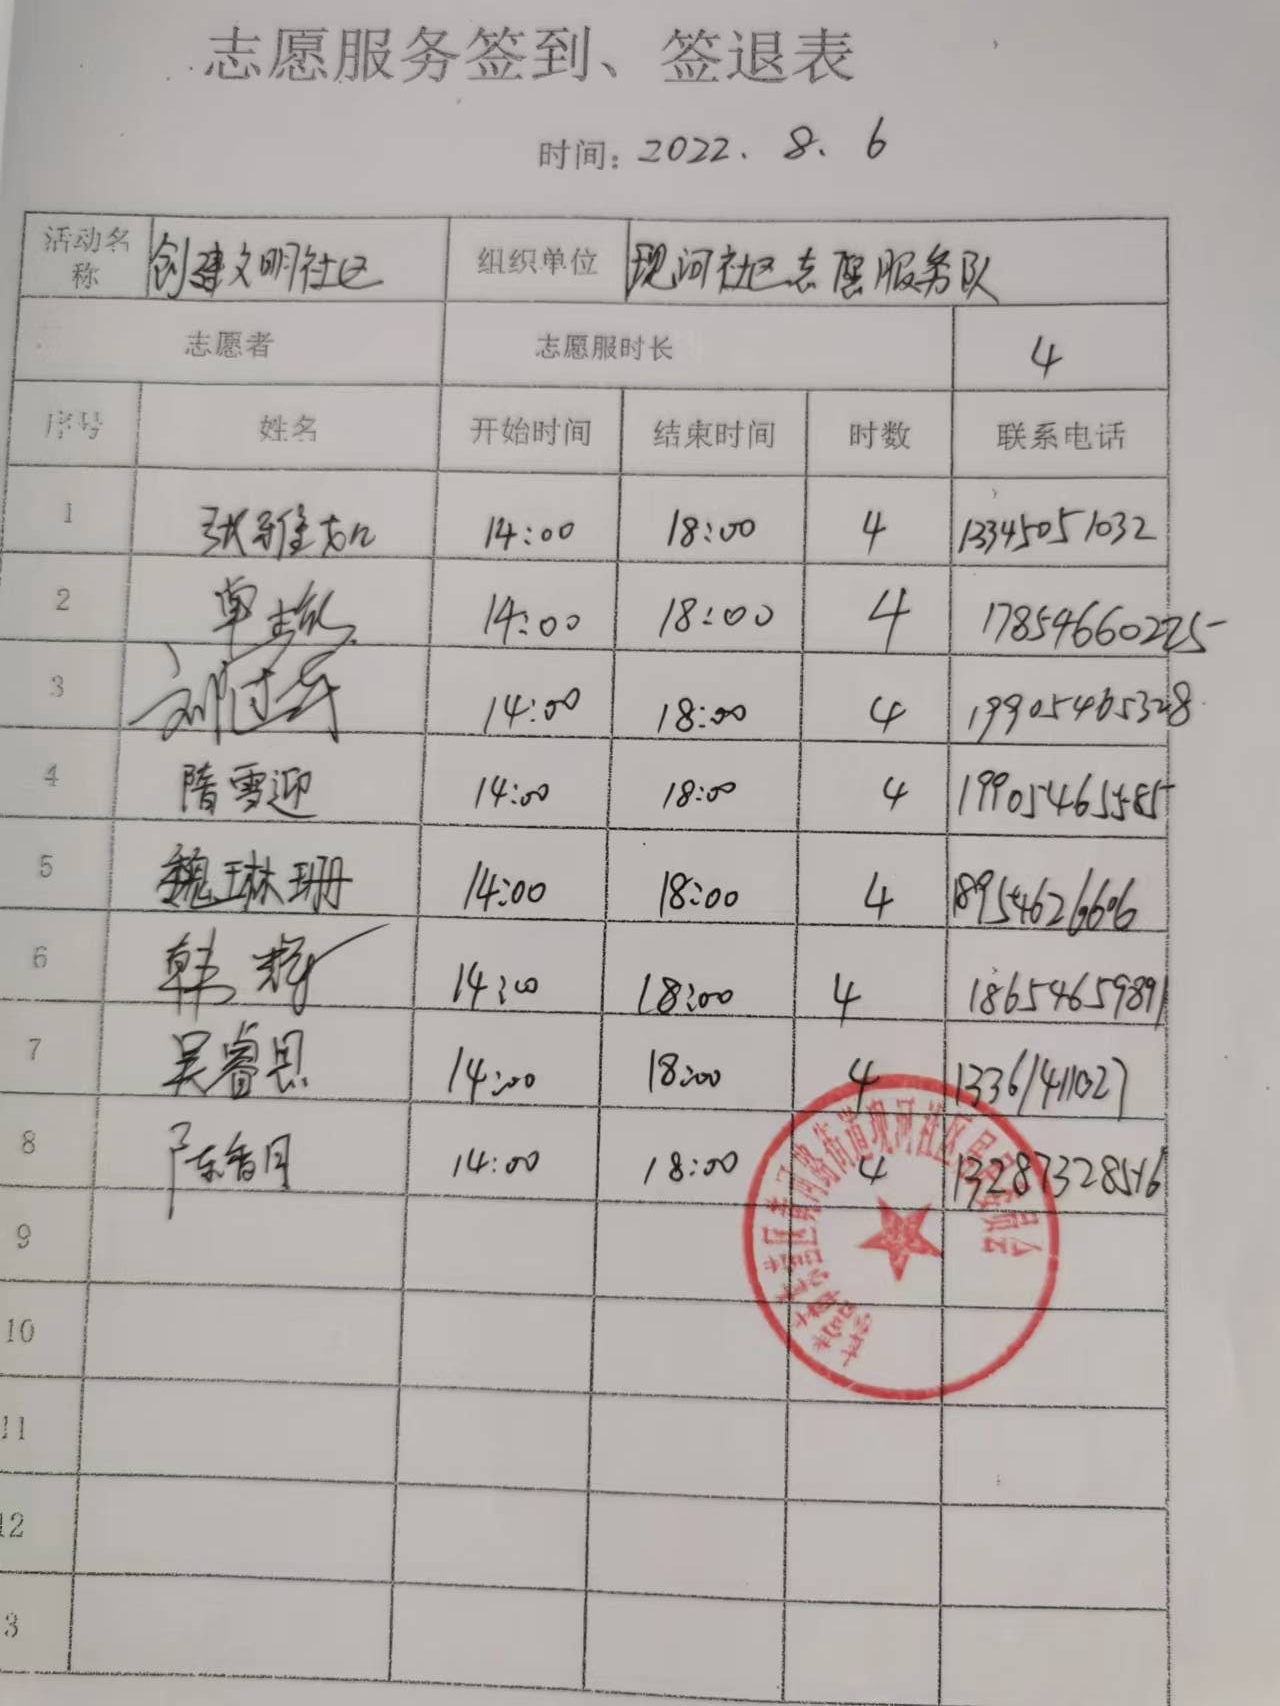 志愿服务签到、签退表
时间：2022.8.6
活动名称 创建文明社区 组织单位 现河社区志愿服务队
志愿者 志愿服时长 4
序号 姓名 开始时间 结束时间 时数 联系电话
1 14:00 18:00 4 13345051032
2 14:00 18:00 4 17854660225
3 14:00 18:00 4 19905465328
4 隋雪迎 14:00 18:00 4 19905465585
5 魏琳珊 14:00 18:00 4 18954626606
6 韩 14:00 18:00 4 18654659891
7 吴睿思 14:00 18:00 4 13361411027
8 陈香月 14:00 18:00 4 13287328516
9
10
11
12
3